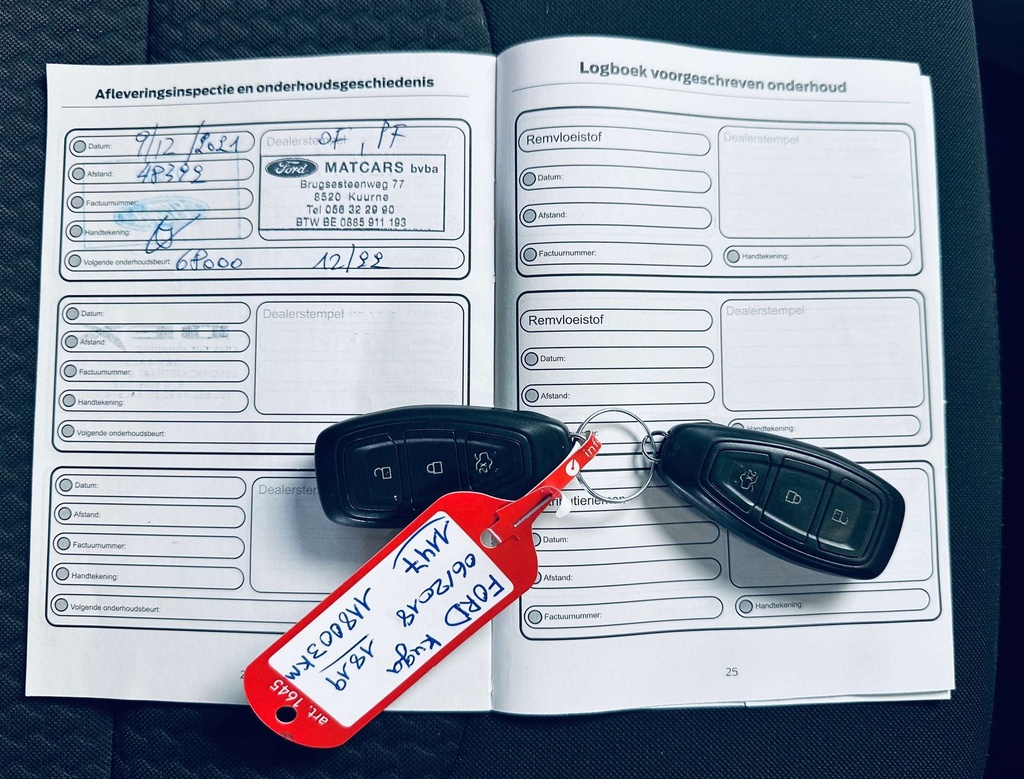 Afleveringsinspectie en onderhoudsgeschiedenis
Datum: 9/12/2021
Afstand: 48392
Factuurnummer:
Handtekening:
Volgende onderhoudsbeurt: 68000 12/22
OF, PF
Ford MATCARS bvba
Brugsesteenweg 77
8520 Kuurne
Tel 056 32 29 90
BTW BE 0885 911 193
Datum:
Afstand:
Factuurnummer:
Handtekening:
Volgende onderhoudsbeurt:
Dealerstempel
Datum:
Afstand:
Factuurnummer:
Handtekening:
Volgende onderhoudsbeurt:
Logboek voorgeschreven onderhoud
Remvloeistof
Datum:
Afstand:
Factuurnummer:
Dealerstempel
Handtekening:
Remvloeistof
Datum:
Afstand:
Dealerstempel
Handtekening:
Datum:
Afstand:
Factuurnummer:
Handtekening:
25
1147
06/2018
FORD Kuga
118003KM
1819
art. 1645